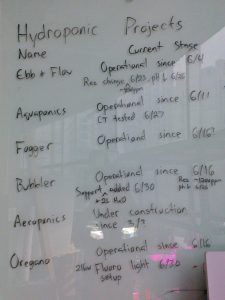 Hydroponic Projects
Name Current Stage
Ebb + Flow Operational since 6/4
Res change 6/23 ph ↓ 6/26
Aquaponics Operational since 6/11
CT tested 6/27
Fogger Operational since 6/16?
Bubbler Operational since 6/16
Support added 6/30 Res
+2L H2O ph 6 6/26
Aeroponics Under construction
since 3/?
Oregano Operational since 6/16
Fluoro light 6/20
setup